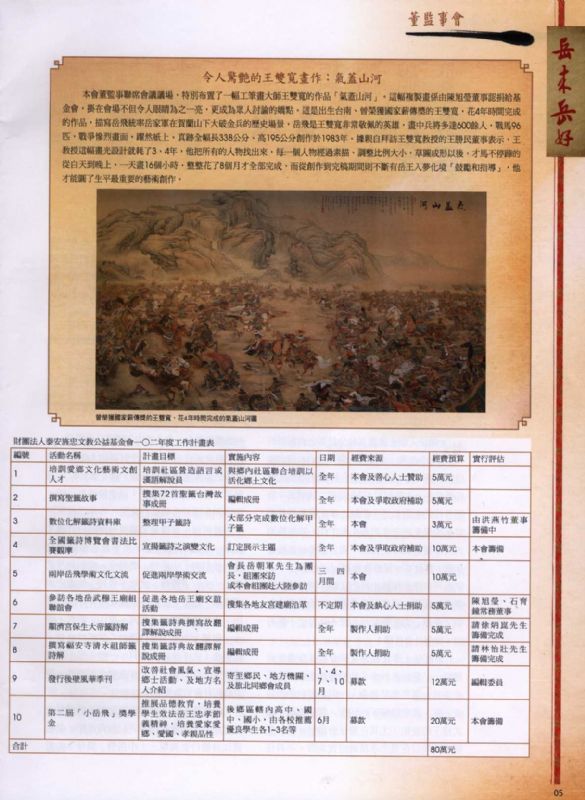 董監事會
岳來岳好
令人驚艷的王雙寬畫作：氣蓋山河
本會董監事聯席會議議場，特別布置了一幅工筆畫大師王雙寬的作品「氣蓋山河」，這幅複製畫係由陳旭瑩董事認捐給基
金會，掛在會場不但令人眼睛為之一亮，更成為眾人討論的焦點。這是出生台南、曾榮獲國家薪傳獎的王雙寬，花4年時間完成
的作品，描寫岳飛統率岳家軍在賀蘭山下大破金兵的歷史場景，岳飛是王雙寬非常敬佩的英雄，畫中兵將多達600餘人，戰馬96
匹，戰爭慘烈畫面，躍然紙上，真跡全幅長338公分、高195公分創作於1983年。據親自拜訪王雙寬教授的王勝民董事表示，王
教授這幅畫光設計就耗了3、4年，他把所有的人物找出來，每一個人物經過素描、調整比例大小，草圖成形以後，才馬不停蹄的
從白天到晚上，一天畫16個小時，整整花了8個月才全部完成，而從創作到完稿期間則不斷有岳王入夢化境「鼓勵和指導」，他
才能圓了生平最重要的藝術創作。
氣蓋山河
曾榮獲國家薪傳獎的王雙寬，花4年時間完成的氣蓋山河圖
財團法人泰安旌忠文教公益基金會一〇二年度工作計畫表
編號 活動名稱 計畫目標 實施內容 日期 經費來源 經費預算 實行評估
1 培訓愛鄉文化藝術文創人才 培訓社區營造語言或漢語解說員 與鄉內社區聯合培訓以活化鄉土文化 全年 本會及善心人士贊助 5萬元
2 撰寫聖籤故事 搜集72首聖籤台灣故事成冊 編輯成冊 全年 本會及爭取政府補助 5萬元
3 數位化解籤詩資料庫 整理甲子籤詩 大部分完成數位化解甲子籤 全年 本會 3萬元 由洪燕竹董事籌備中
4 全國籤詩博覽會書法比賽觀摩 宣揚籤詩之演變文化 訂定展示主題 全年 本會及爭取政府補助 10萬元 本會籌備
5 兩岸岳飛學術文化交流 促進兩岸學術交流 會長岳朝軍先生為團長，組團來訪或本會組團赴大陸參訪 三 四月間 本會 10萬元
6 參訪各地岳武穆王廟組聯誼會 促進各地岳王廟交誼活動 搜集各地友宮建廟沿革 不定期 本會及熱心人士捐助 5萬元 陳旭瑩、石育鐘常務董事
7 顯濟宮保生大帝籤詩解 搜集籤詩典撰寫故翻譯解說成冊 編輯成冊 全年 製作人捐助 5萬元 請徐炳崑先生籌備完成
8 撰寫福安寺清水祖師籤詩解 搜集籤詩典故翻譯解說成冊 編輯成冊 全年 製作人捐助 5萬元 請林怡壯先生籌備完成
9 發行後壁風華季刊 改善社會風氣、宣導鄉土活動、及地方名人介紹 寄至鄉民、地方機關、及旅北同鄉會成員 1、4、7、10月 募款 12萬元 編輯委員
10 第二屆「小岳飛」獎學金 推展品德教育，培養學生效法岳王忠孝節義精神，培養愛家愛鄉、愛國、孝親品性 後鄉區轄內高中、國中、國小，由各校推薦優良學生各1~3名等 6月 募款 20萬元 本會籌備
合計 80萬元
05